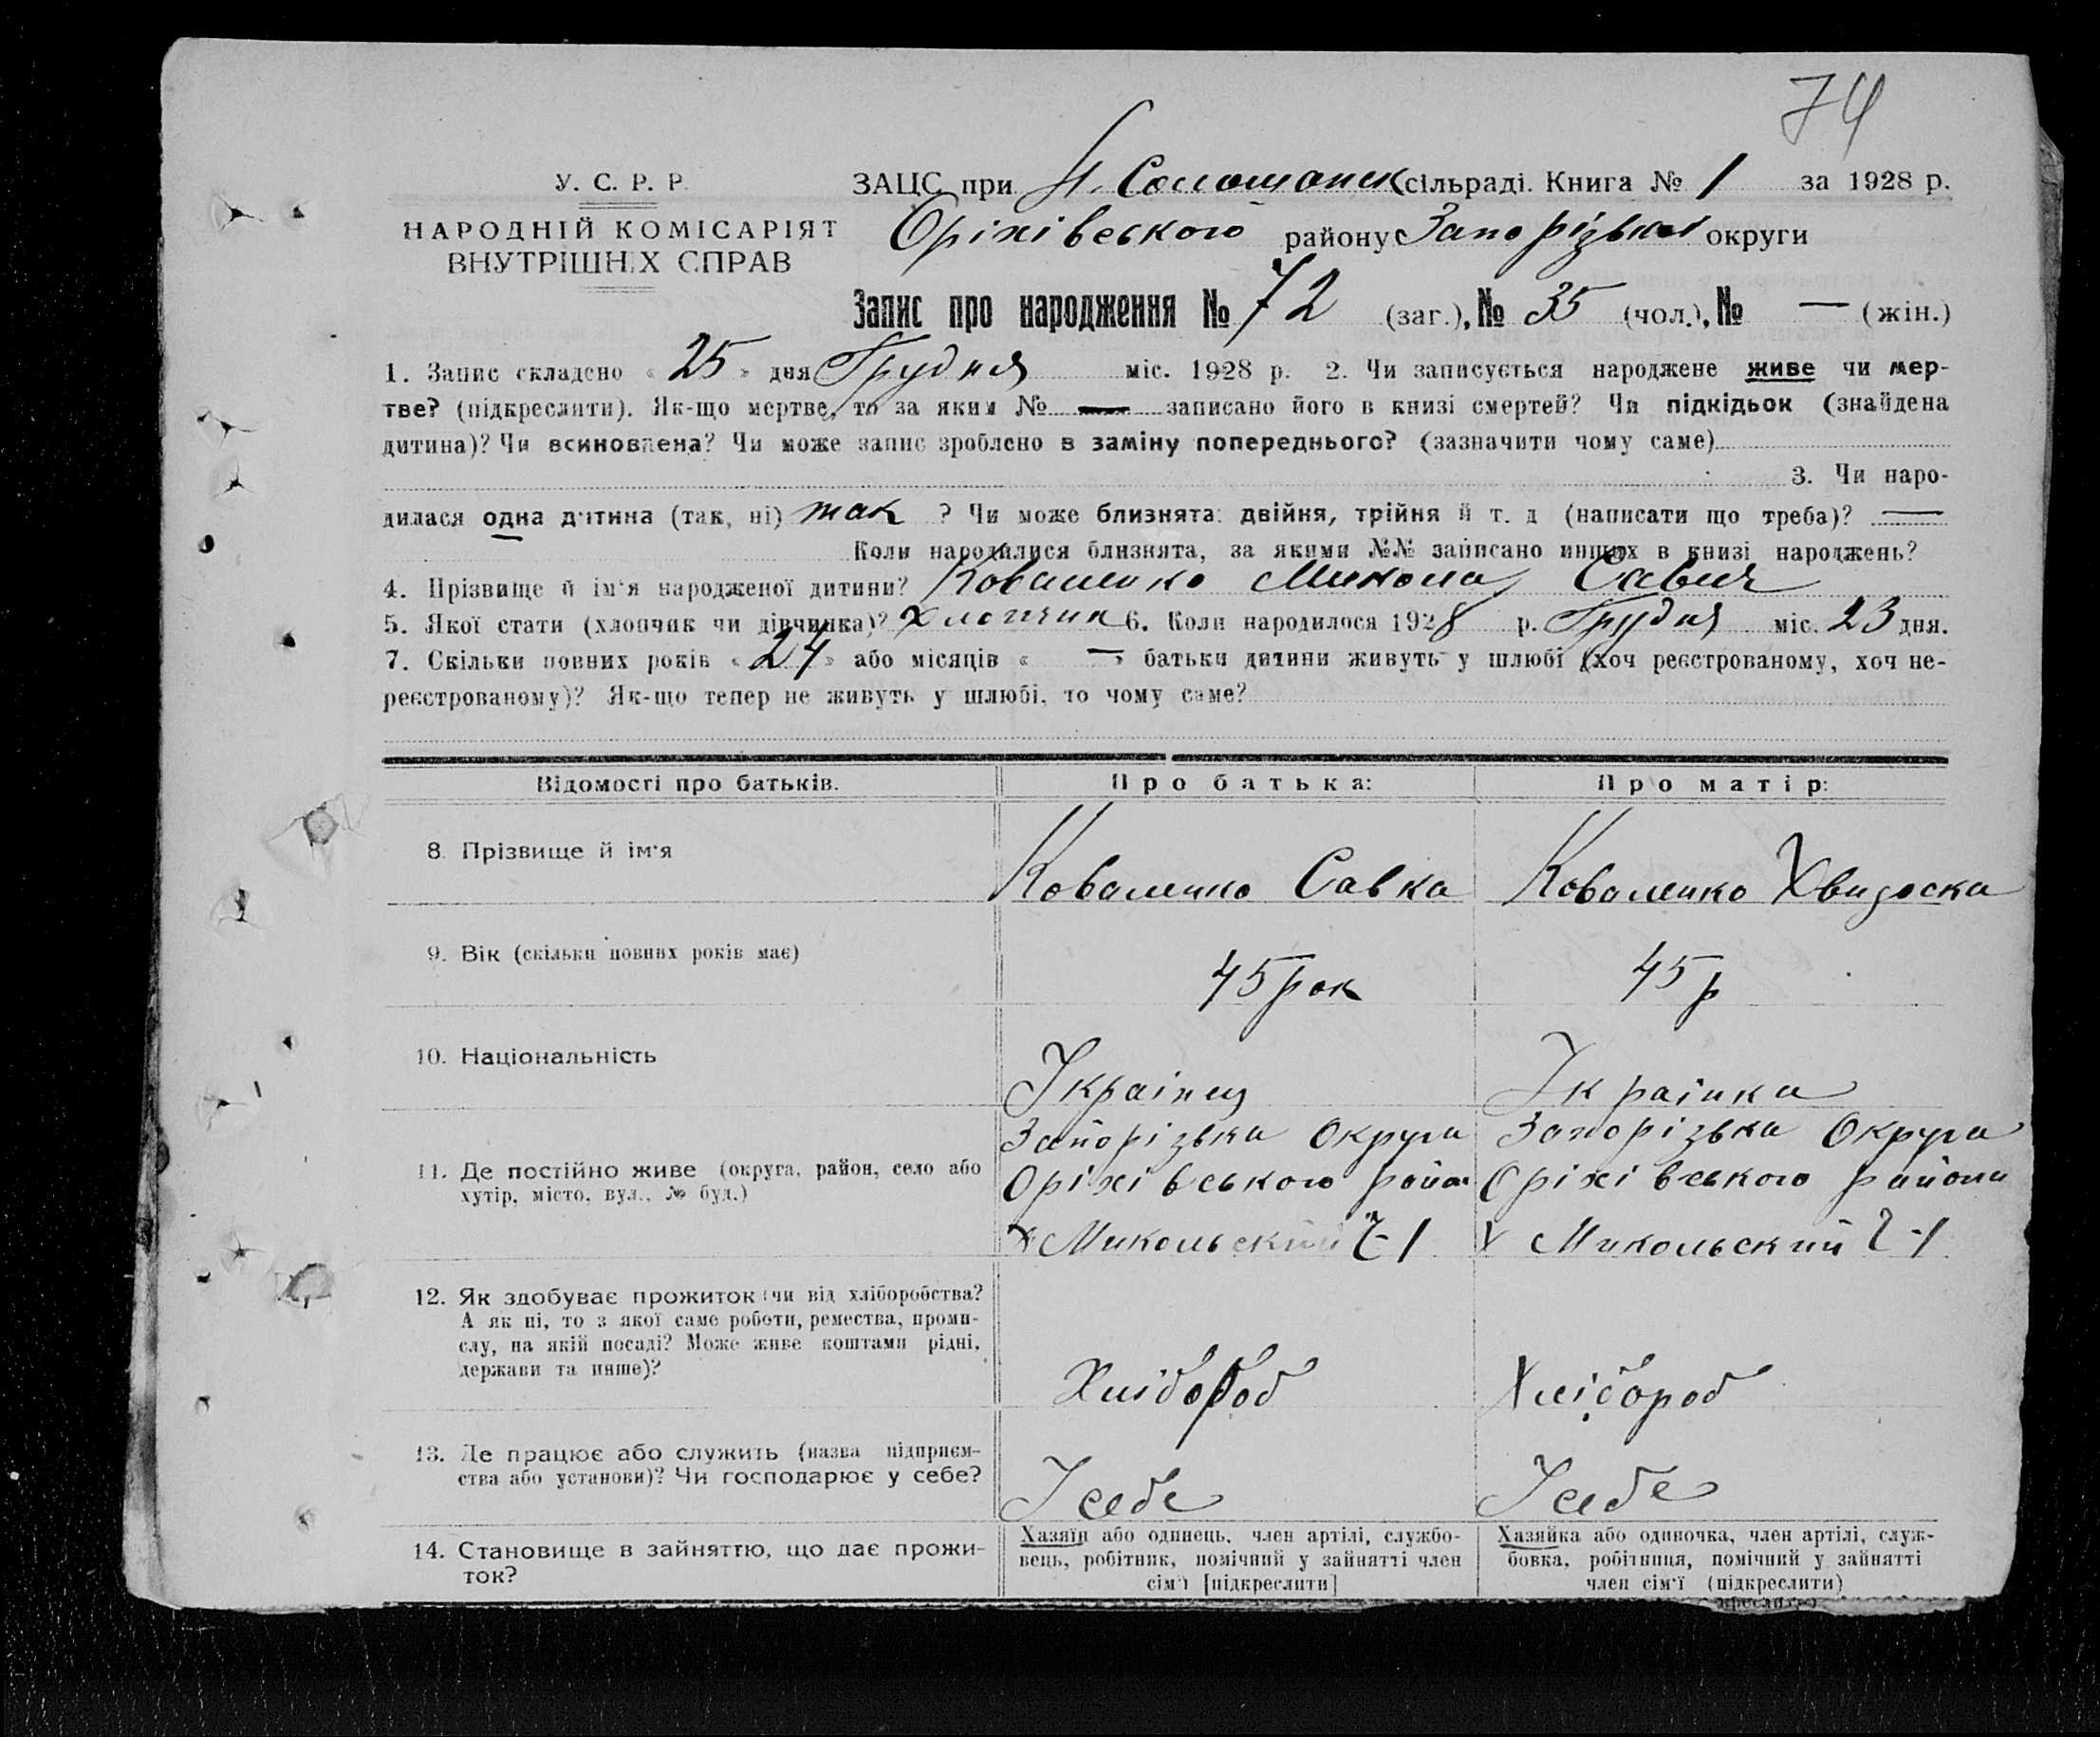 74
У. С. Р. Р.
ЗАЦС при Н. Солошанск сільраді. Книга № 1 за 1928 р.
НАРОДНІЙ КОМІСАРІЯТ
ВНУТРІШНІХ СПРАВ
Оріхівського району Запорізької округи
Запис про народження № 72 (заг.), № 35 (чол.), № — (жін.)
1. Запис складено « 25 » дня Грудня міс. 1928 р. 2. Чи записується народжене живе чи мер-
тве? (підкреслити). Як-що мертве, то за яким № — записано його в книзі смертей? Чи підкідьок (знайдена
дитина)? Чи всиновлена? Чи може запис зроблено в заміну попереднього? (зазначити чому саме)
3. Чи наро-
дилася одна дитина (так, ні) так ? Чи може близнята: двійня, трійня й т. д (написати що треба)? —
Коли народилися близнята, за якими №№ записано инших в книзі народжень?
4. Прізвище й ім'я народженої дитини? Коваленко Микола Савич
5. Якої стати (хлопчик чи дівчинка)? Хлопчик 6. Коли народилося 1928 р. Грудня міс. 23 дня.
7. Скільки повних років « 24 » або місяців « — » батьки дитини живуть у шлюбі (хоч реєстрованому, хоч не-
реєстрованому)? Як-що тепер не живуть у шлюбі, то чому саме?
Відомості про батьків.
Про батька:
Про матір:
8. Прізвище й ім'я
Коваленко Савка
Коваленко Хвидоска
9. Вік (скільки повних років має)
45 рок
45 р
10. Національність
Українец
Українка
11. Де постійно живе (округа, район, село або
хутір, місто, вул., № буд.)
Запорізька Округа
Оріхівського район
х Микольский Ҁ-1
Запорізька Округа
Оріхівського района
х Микольский 2-1
12. Як здобуває прожиток (чи від хліборобства?
А як ні, то з якої саме роботи, ремества, проми-
слу, на якій посаді? Може живе коштами рідні,
держави та инше)?
Хлібороб
Хлібороб
13. Де працює або служить (назва підприєм-
ства або установи)? Чи господарює у себе?
У себе
У себе
14. Становище в зайняттю, що дає прожи-
ток?
Хазяїн або одинець, член артілі, службо-
вець, робітник, помічний у зайнятті член
сім'ї [підкреслити]
Хазяйка або одиночка, член артілі, служ-
бовка, робітниця, помічний у зайнятті
член сім'ї (підкреслити)